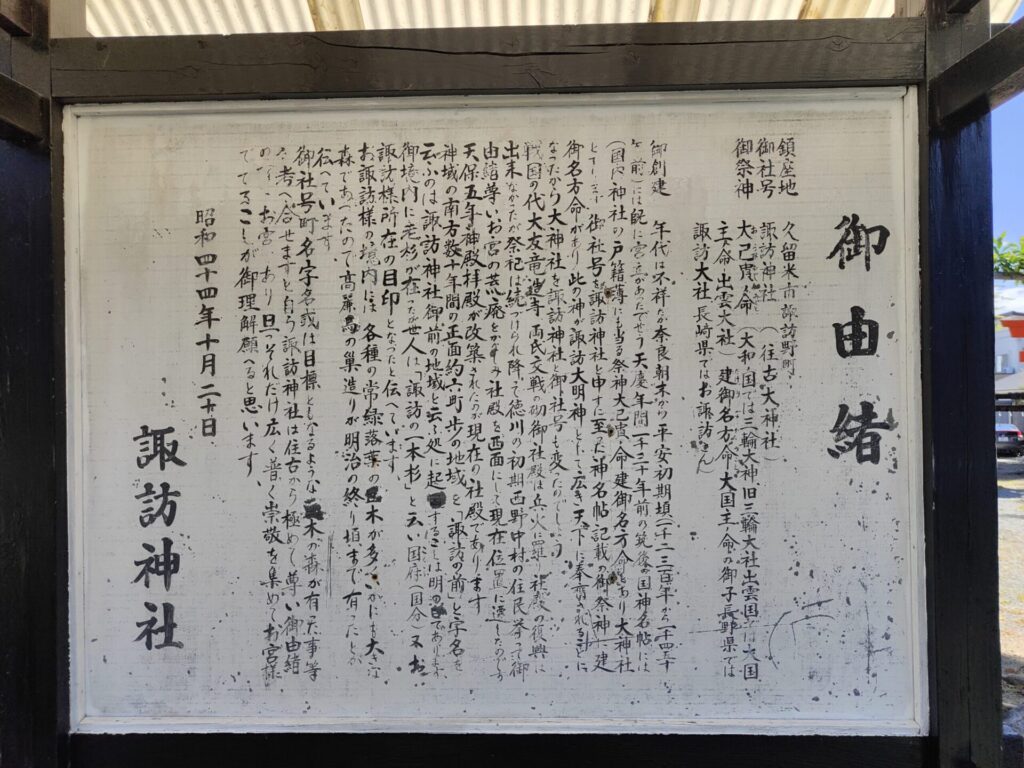 御由緒
鎮座地 久留米市諏訪野町
御社号 諏訪神社 (往古大神社)
御祭神 大己貴命 (大和国では三輪大神旧三輪大社出雲国では大国
主命出雲大社) 建御名方命大国主命の御子長野県では
諏訪大社長崎県ではお諏訪さん
御創建 年代は不祥だが奈良朝末から平安初期頃(千二三百年から千四五十
年前)には既に宮立があったでせう天慶年間(千三十年前の筑後国神名帖には
(国内神社の戸籍薄に当る祭神大己貴命建御名方命とあり大神社
とす 御社号を諏訪神社と申すに至った神名帖記載の御祭神建
御名方命があり此の神が諏訪大明神として広き天下に奉斎される
なったから大神社を諏訪神社と御社号も変ったのでしょう
戦国の代大友竜造寺両氏交戦の砌御社殿は兵火に罹り社殿の復興は
出来なかったが祭祀は続づけられ降って徳川の初期西野中村の住民挙って御
由緒尊いお宮の荒廃をかなしみ社殿を西面にして現在位置に遷したのです
天保五年神殿拝殿が改築されたのが現在の社殿であります
神域の南方数十年間の正面約六町歩の地域を「諏訪の前」と字名を
云ふのは諏訪神社御前の地域と云ふ処に起 すことは明の であります
御境内に老杉が在ったが世人は「諏訪の一本杉」と云い国府(国分)
諏訪様所在の目印となったと伝へています
お諏訪様の境内には各種の常緑落葉の 木が多くいかにも大きな
森であったので高 の巣造りが明治の終り頃まで有ったとか
伝へています
御社号町名字名或は目標ともなるような 木が森が有った事等
を考へ合せますと自う諏訪神社は往古から極めて尊い御由緒
の お宮であり且つそれだけ広く普く崇敬を集めてお宮様
で てることが御理解願へると思います
昭和四十四年十月二十日
諏訪神社